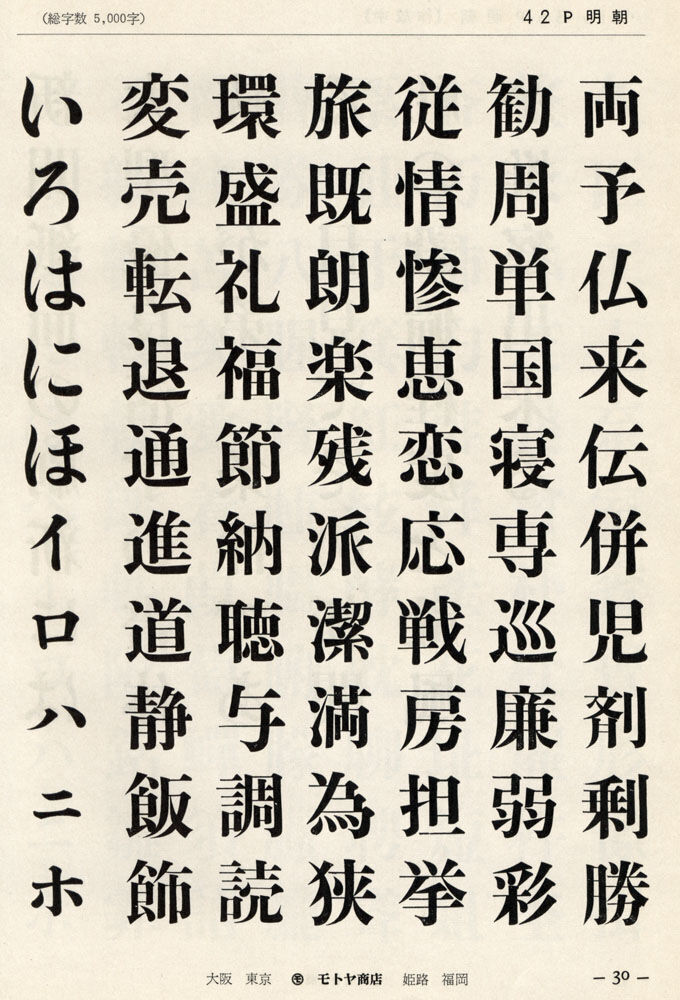 (総字数 5,000字)
42P 明朝
両予仏来伝併児剤剰勝
勧周単国寝専巡廉弱彩
従情惨恵恋応戦房担挙
旅既朗楽残派潔満為狭
環盛礼福節納聴与調読
変売転退通進道静飯飾
いろはにほイロハニホ
大阪 東京 ㋲ モトヤ商店 姫路 福岡
— 30 —